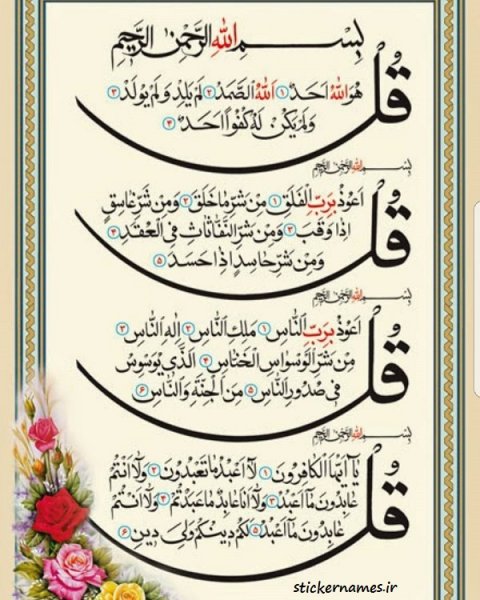 بِسْمِ اللهِ الرَّحْمٰنِ الرَّحِيمِ
قُلْ هُوَ اللهُ اَحَدٌ ۱ اَللهُ الصَّمَدُ ۲ لَمْ يَلِدْ وَلَمْ يُولَدْ ۳
وَلَمْ يَكُنْ لَهُ كُفُوًا اَحَدٌ ۴
بِسْمِ اللهِ الرَّحْمٰنِ الرَّحِيمِ
قُلْ اَعُوذُ بِرَبِّ الْفَلَقِ ۱ مِنْ شَرِّ مَا خَلَقَ ۲ وَمِنْ شَرِّ غَاسِقٍ
اِذَا وَقَبَ ۳ وَمِنْ شَرِّ النَّفَّاثَاتِ فِي الْعُقَدِ ۴
وَمِنْ شَرِّ حَاسِدٍ اِذَا حَسَدَ ۵
بِسْمِ اللهِ الرَّحْمٰنِ الرَّحِيمِ
قُلْ اَعُوذُ بِرَبِّ النَّاسِ ۱ مَلِكِ النَّاسِ ۲ اِلٰهِ النَّاسِ ۳
مِنْ شَرِّ الْوَسْوَاسِ الْخَنَّاسِ ۴ اَلَّذِي يُوَسْوِسُ
فِي صُدُورِ النَّاسِ ۵ مِنَ الْجِنَّةِ وَالنَّاسِ ۶
بِسْمِ اللهِ الرَّحْمٰنِ الرَّحِيمِ
قُلْ يَا اَيُّهَا الْكَافِرُونَ ۱ لَا اَعْبُدُ مَا تَعْبُدُونَ ۲ وَلَا اَنْتُمْ
عَابِدُونَ مَا اَعْبُدُ ۳ وَلَا اَنَا عَابِدٌ مَا عَبَدْتُمْ ۴ وَلَا اَنْتُمْ
عَابِدُونَ مَا اَعْبُدُ ۵ لَكُمْ دِينُكُمْ وَلِيَ دِينِ ۶
stickernames.ir